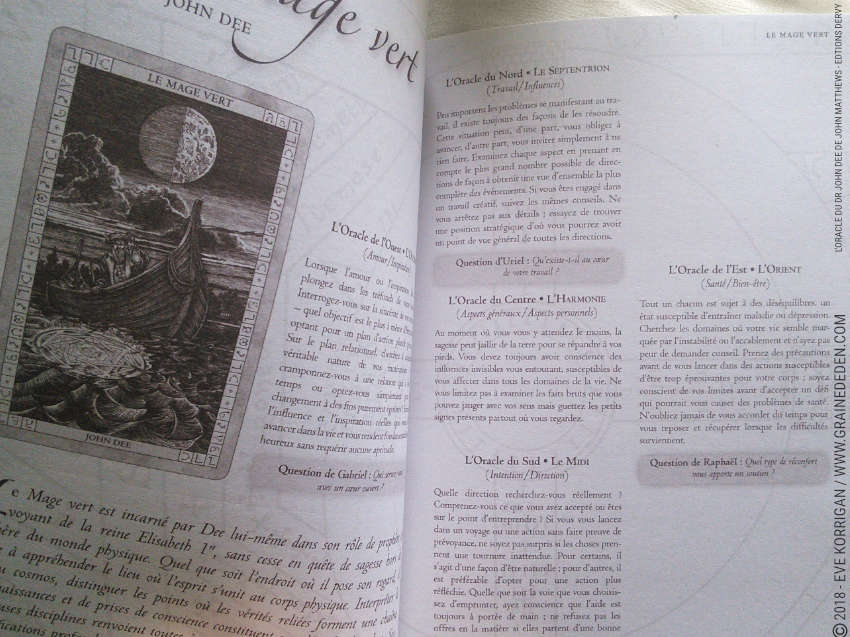 JOHN DEE
Mage vert
LE MAGE VERT
JOHN DEE
L'Oracle de l'Ouest • L'O
(Amour/Inspiration)
Lorsque l'amour ou l'inspi
plongez dans les tréfonds de
Interrogez-vous sur la
– quel objectif est le plus à même
optant pour un plan d'action
Sur le plan relationnel,
véritable nature de vos
cramponnez-vous à une relation qui
temps ou optez-vous simplement
changement à des fins purement
l'influence et l'inspiration
avancer dans la vie et vous rendent
heureux sans requérir aucune
Question de Gabriel : Qui
avec un cœur ouvert ?
e Mage vert est incarné par Dee lui-même dans son rôle de prophète
voyant de la reine Elisabeth 1re, sans cesse en quête de sagesse hors
ère du monde physique. Quel que soit l'endroit où il pose son regard,
à appréhender le lieu où l'esprit s'unit au corps physique. Interpréter
u cosmos, distinguer les points où les vérités reliées forment une
aissances et de prises de conscience constituent
uses disciplines renvoient toutes
LE MAGE VERT
L'Oracle du Nord • Le Septentrion
(Travail/Influences)
Peu importent les problèmes se manifestant au tra-
vail, il existe toujours des façons de les résoudre.
Cette situation peut, d'une part, vous obliger à
avancer, d'autre part, vous inviter simplement à ne
rien faire. Examinez chaque aspect en prenant en
compte le plus grand nombre possible de direc-
tions de façon à obtenir une vue d'ensemble la plus
complète des événements. Si vous êtes engagé dans
un travail créatif, suivez les mêmes conseils. Ne
vous arrêtez pas aux détails ; essayez de trouver
une position stratégique d'où vous pourrez avoir
un point de vue général de toutes les directions.
Question d'Uriel : Qu'existe-t-il au cœur
de votre travail ?
L'Oracle du Centre • L'Harmonie
(Aspects généraux/Aspects personnels)
Au moment où vous vous y attendez le moins, la
sagesse peut jaillir de la terre pour se répandre à vos
pieds. Vous devez toujours avoir conscience des
influences invisibles vous entourant, susceptibles de
vous affecter dans tous les domaines de la vie. Ne
vous limitez pas à examiner les faits bruts que vous
pouvez juger avec vos sens mais guettez les petits
signes présents partout où vous regardez.
L'Oracle du Sud • Le Midi
(Intention/Direction)
Quelle direction recherchez-vous réellement ?
Comprenez-vous ce que vous avez accepté ou êtes
sur le point d'entreprendre ? Si vous vous lancez
dans un voyage ou une action sans faire preuve de
prévoyance, ne soyez pas surpris si les choses pren-
nent une tournure inattendue. Pour certains, il
s'agit d'une façon d'être naturelle ; pour d'autres, il
est préférable d'opter pour une action plus
réfléchie. Quelle que soit la voie que vous choisis-
sez d'emprunter, ayez conscience que l'aide est
toujours à portée de main : ne refusez pas les
offres en la matière si elles partent d'une bonne
L'Oracle de l'Est • L'Orient
(Santé/Bien-être)
Tout un chacun est sujet à des déséquilibres, un
état susceptible d'entraîner maladie ou dépression.
Cherchez les domaines où votre vie semble mar-
quée par l'instabilité ou l'accablement et n'ayez pas
peur de demander conseil. Prenez des précautions
avant de vous lancer dans des actions susceptibles
d'être trop éprouvantes pour votre corps ; soyez
conscient de vos limites avant d'accepter un défi
qui pourrait vous causer des problèmes de santé.
N'oubliez jamais de vous accorder du temps pour
vous reposer et récupérer lorsque les difficultés
surviennent.
Question de Raphaël : Quel type de réconfort
vous apporte un soutien ?
© 2018 - EVE KORRIGAN / WWW.GRAINEDEDEN.COM
L'ORACLE DU DR JOHN DEE DE JOHN MATTHEWS - EDITIONS DERVY